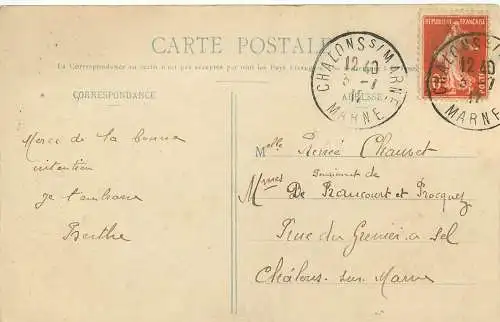 CARTE POSTALE
La Correspondance au recto n'est pas acceptée par tous les Pays
RÉPUBLIQUE FRANÇAISE
CHALONS S/ MARNE
12 40
3 - 7
MARNE
CHALONS S/ MARNE
12 40
3 - 7
MARNE
CORRESPONDANCE
ADRESSE
Merci de la bonne
intention
je t'embrasse
Berthe
Melle Renée Chauvet
Pensionnat de
Mmes De Rancourt et Rocquez
Rue du Grenier a Sel
Châlons sur Marne